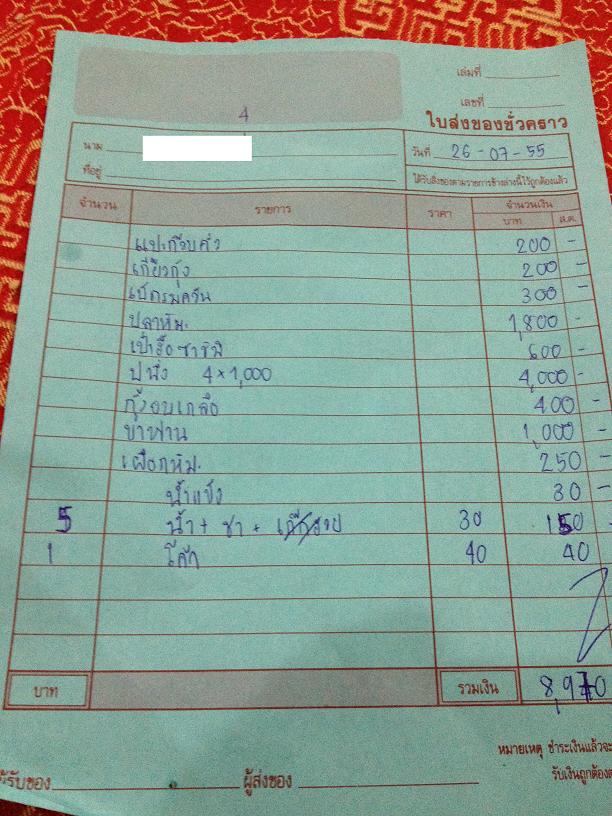 4
เล่มที่
เลขที่
ใบส่งของชั่วคราว
นาม
ที่อยู่
วันที่ 26-07-55
ได้รับสิ่งของตามรายการข้างล่างนี้ไว้ถูกต้องแล้ว
จำนวน รายการ ราคา จำนวนเงิน
บาท ส.ต.
แปะก๊วยคั่ว 200 -
เกี๊ยวกุ้ง 200 -
เป็ดรมควัน 300 -
ปลาหิม. 1,800 -
เป๋าฮื้อซาซิมิ 600 -
ปูนึ่ง 4×1,000 4,000 -
กุ้งอบเกลือ 400 -
ขาห่าน 1,000 -
เผือกหิม. 250 -
น้ำแข็ง 30 -
5 น้ำ + ชา + 30 150 -
1 โค้ก 40 40
บาท รวมเงิน 8,970
หมายเหตุ ชำระเงินแล้วจะ
รับเงินถูกต้อง
ผู้รับของ ผู้ส่งของ